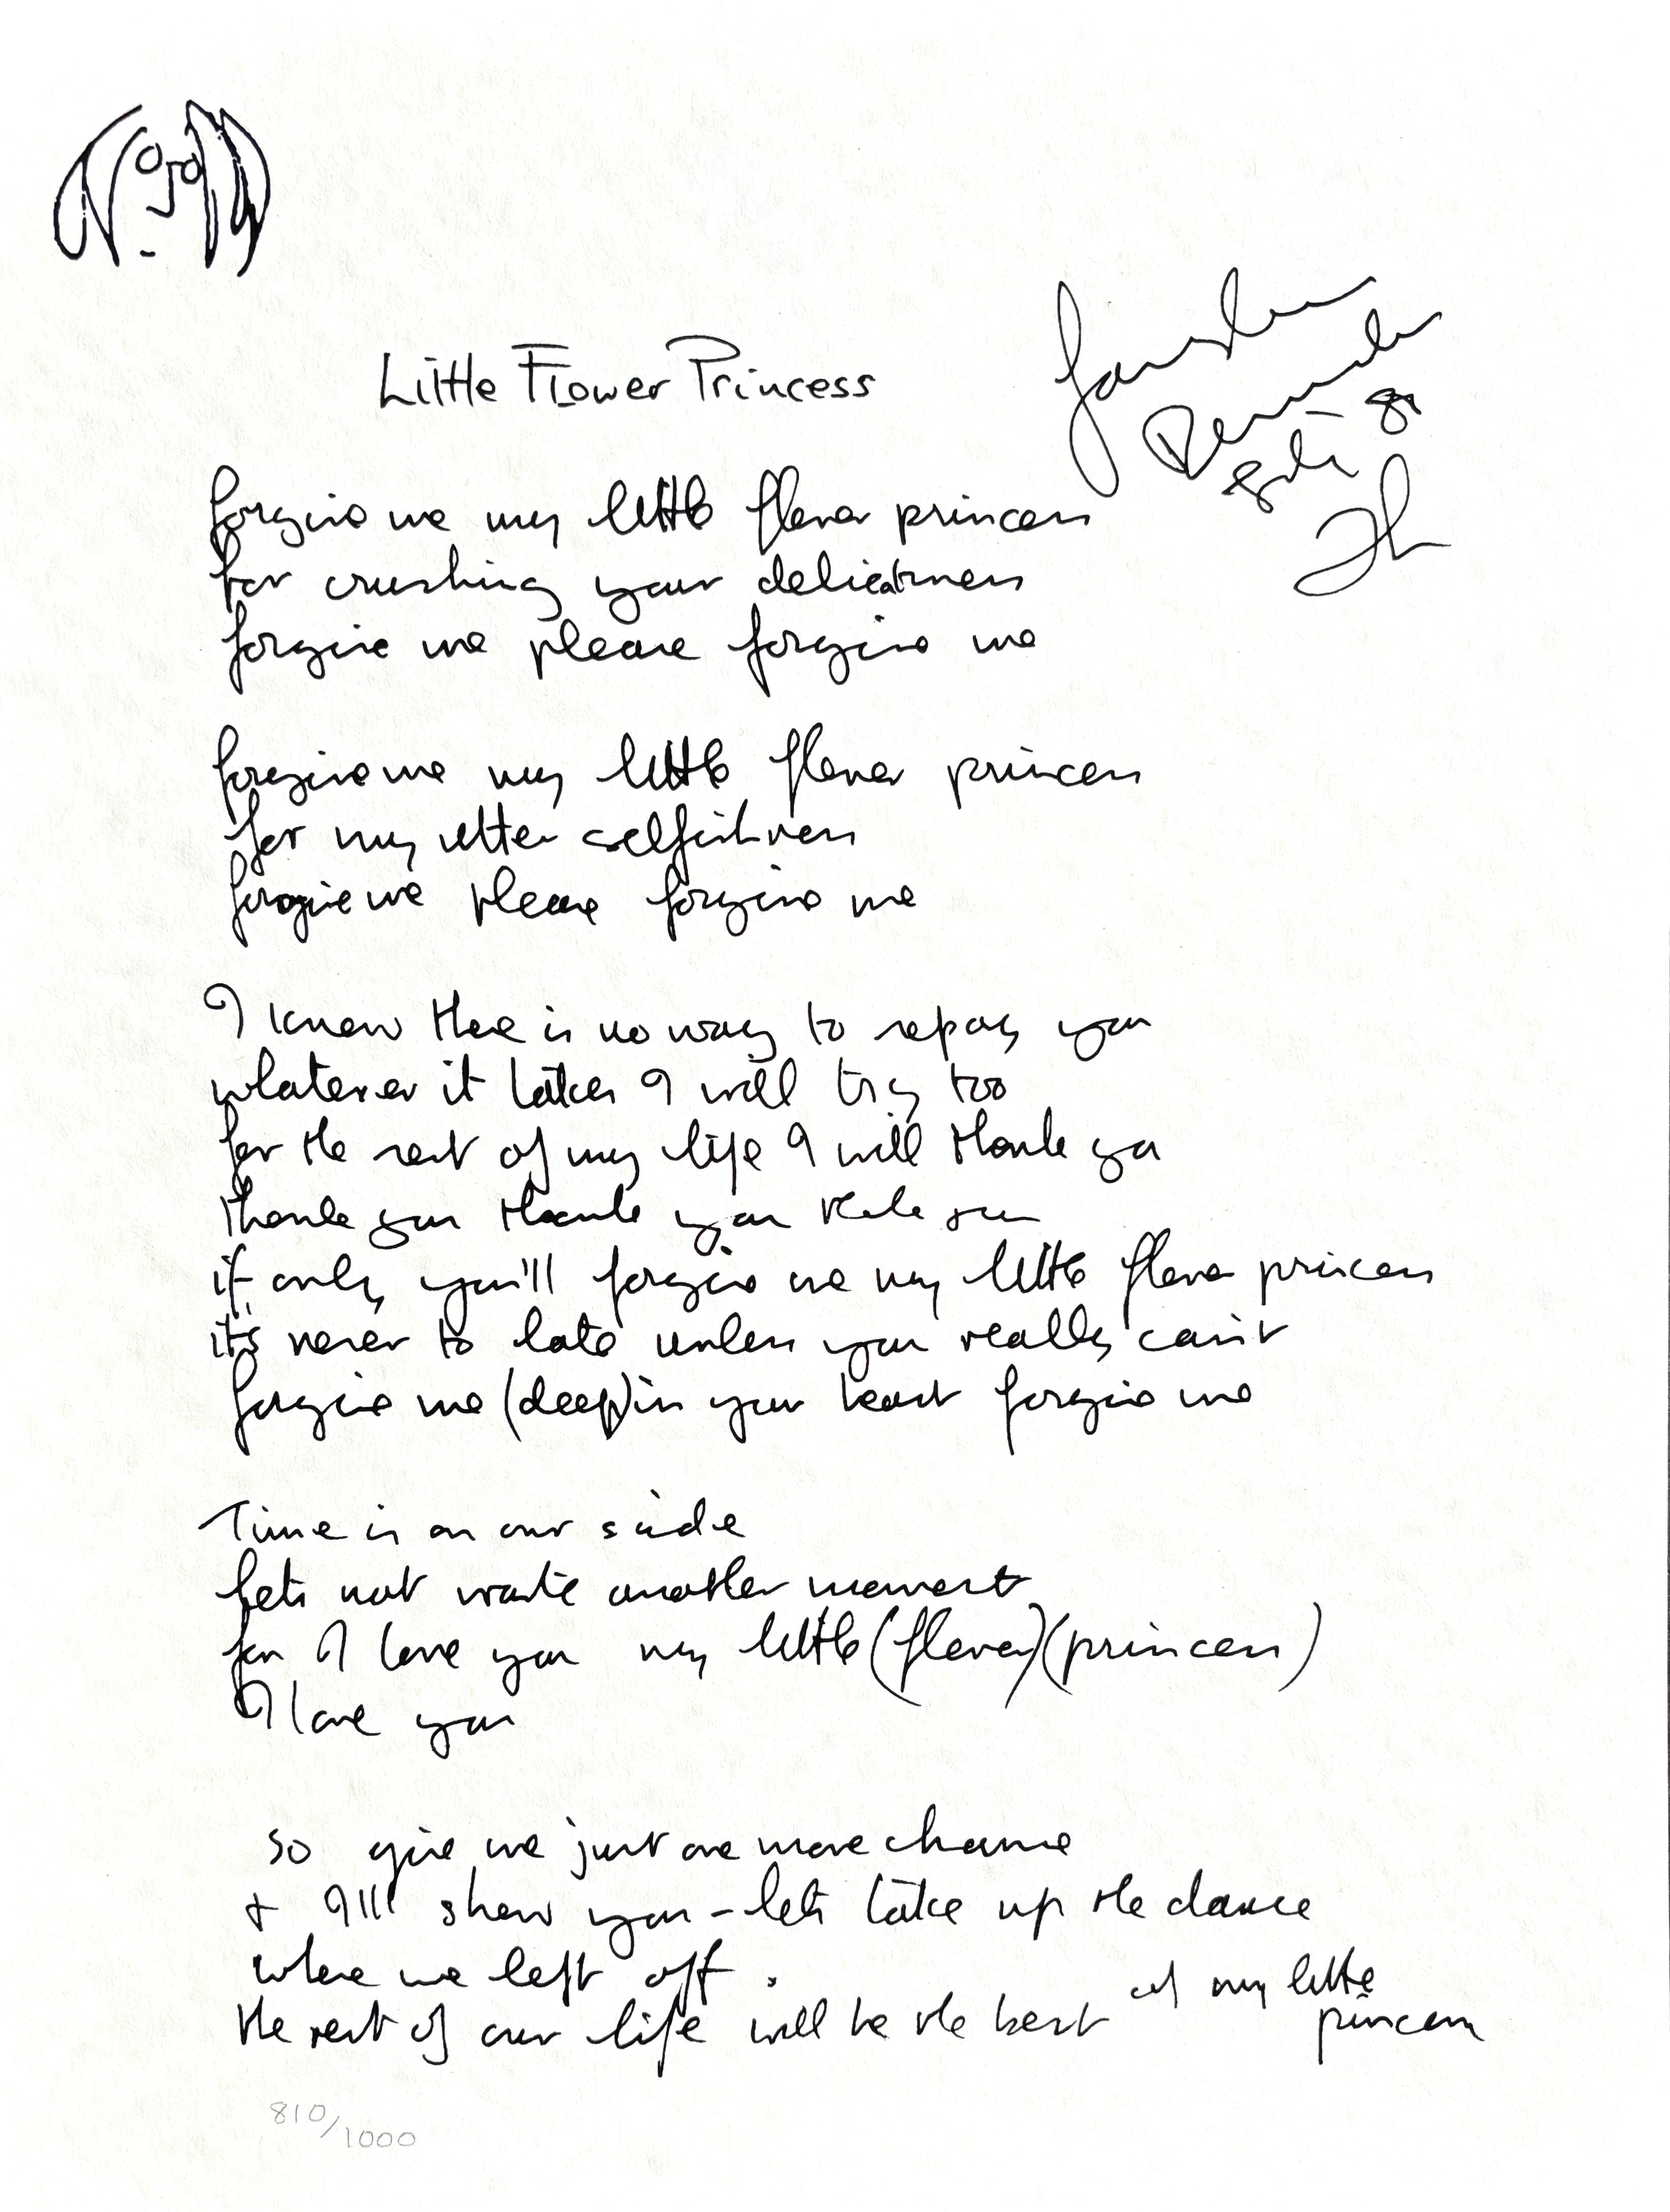 Little Flower Princess
forgive me my little flower princess
for crushing your delicatness
forgive me please forgive me
forgive me my little flower princess
for my utter selfishness
forgive me please forgive me
I know there is no way to repay you
whatever it takes I will try too
for the rest of my life I will thank you
thank you thank you thank you
if only you'll forgive me my little flower princess
it's never to late unless you really can't
forgive me (deep) in your heart forgive me
Time is on our side
lets not waste another moment
for I love you my little (flower) (princess)
I love you
so give me just one more chance
+ I'll show you - lets take up the dance
where we left off.
the rest of our life will be the best of my little
princess
810/1000